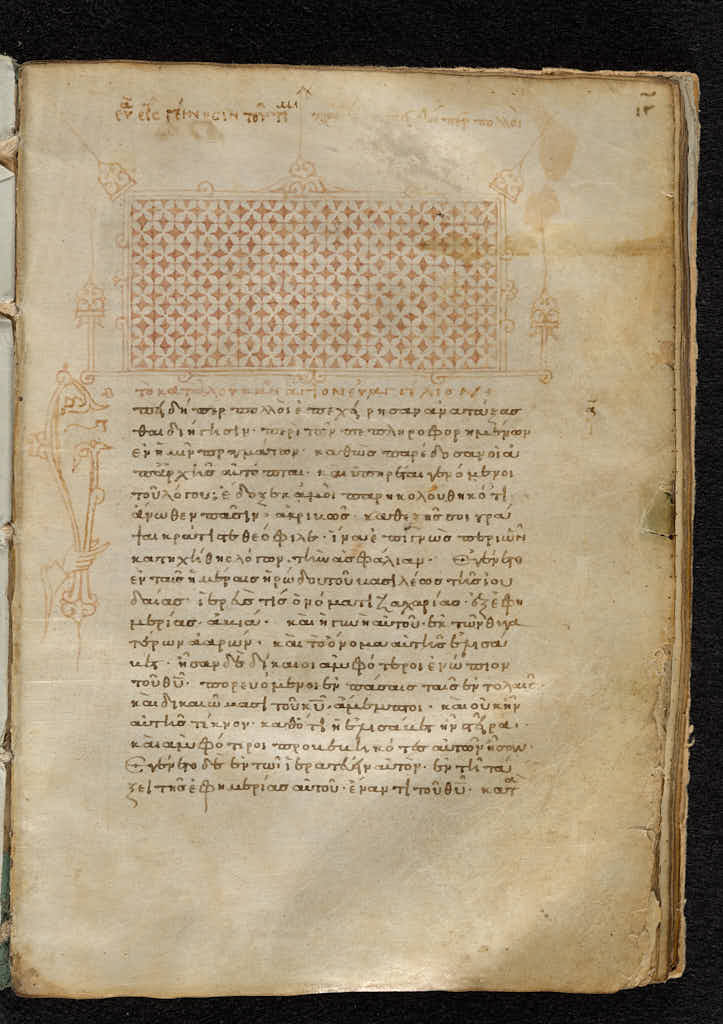 εἰς γέννησιν τοῦ
ἐπειδήπερ πολλοὶ
τὸ κατὰ λουκὰν ἅγιον εὐαγγέλιον
πειδήπερ πολλοὶ ἐπεχήρησαν ἀνατάξασ
θαι διήγησιν· περὶ τῶν πεπληροφορημένων
ἐν ἡμῖν πργμάτων· καθὼς παρέδοσαν οἱ ἀ
π' ἀρχῆς αὐτόπται· καὶ ὑπηρέται γενόμενοι
τοῦ λόγου· ἔδοξε κἀμοὶ παρηκολουθηκότι
ἄνωθεν πᾶσιν ἀκριβῶς· καθεξῆς σοι γρά
ψαι κράτιστε θεόφιλε· ἵνα ἐπιγνῶς περὶ ὧν
κατηχήθης λόγων· τὴν ἀσφάλιαν· Ἐγένετο
ἐν ταῖς ἡμέραις ἡρώδου τοῦ βασιλέως τῆς ἰου
δαίας· ἱερεύς τις ὀνόματι ζαχαρίας· ἐξ ἐφη
μερίας ἀβιά· καὶ ἡ γυνὴ αὐτοῦ· ἐκ τῶν θυγα
τέρων ἀαρών· καὶ τὸ ὄνομα αὐτῆς ἐλισά
βετ· ἦσαν δὲ δίκαιοι ἀμφότεροι ἐνώπιον
τοῦ θυ· πορευόμενοι ἐν πάσαις ταῖς ἐντολαῖς·
καὶ δικαιώμασι τοῦ κυ ἄμεμπτοι· καὶ οὐκ ἦν
αὐτοῖς τέκνον· καθότι ἡ ἐλισάβετ ἦν στεῖρα·
καὶ ἀμφότεροι προβεβηκότες αὐτῶν ἦσαν·
Ἐγένετο δὲ ἐν τῶι ἱερατεύειν αὐτὸν· ἐν τῆ τά
ξει τῆς ἐφημερίας αὐτοῦ· ἔναντι τοῦ θυ· κατὰ